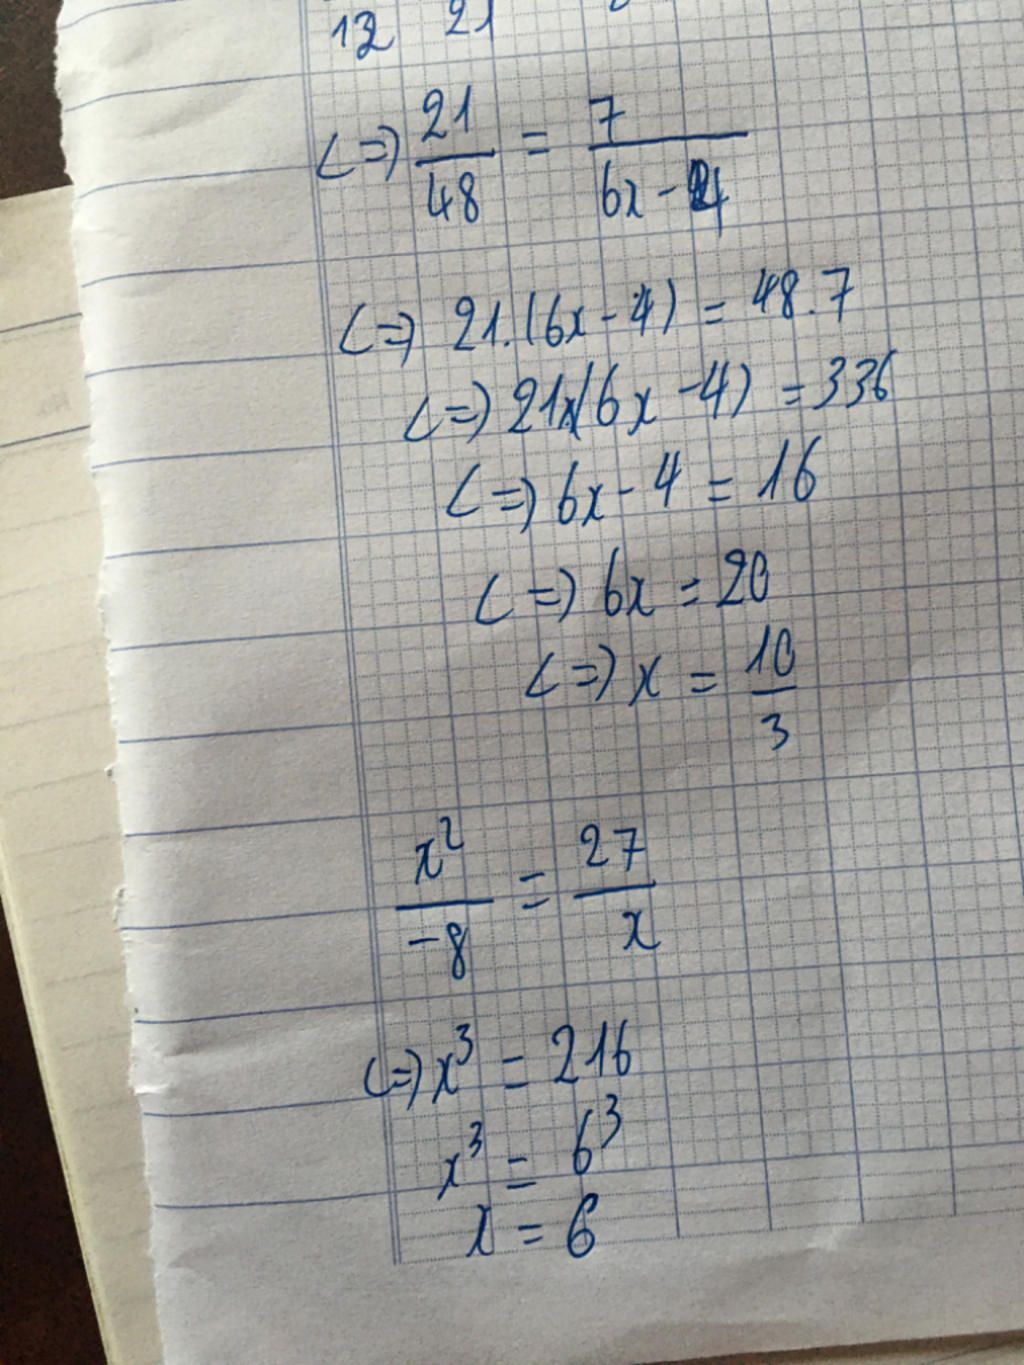 12 21
<=> 21/48 = 7/(6x - 4)
<=> 21.(6x - 4) = 48.7
<=> 21x(6x - 4) = 336
<=> 6x - 4 = 16
<=> 6x = 20
<=> x = 10/3
x²/-8 = 27/x
<=> x³ = 216
x³ = 6³
x = 6